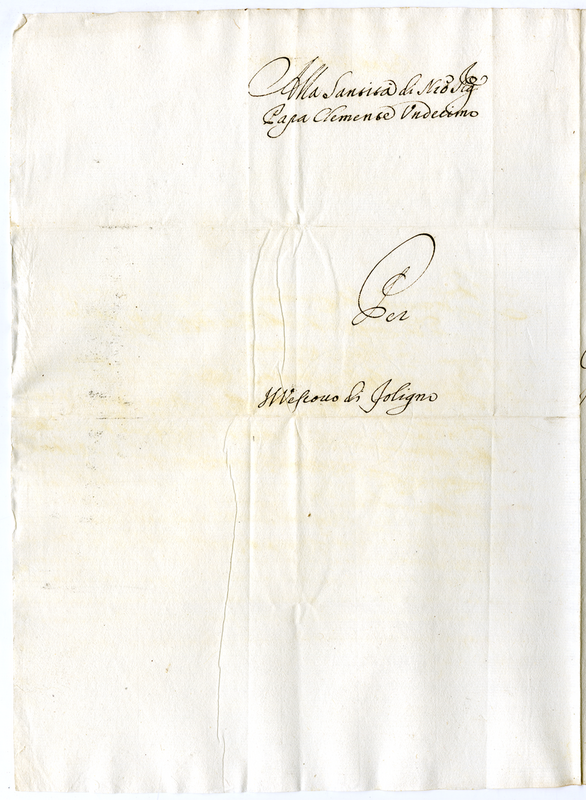 Alla Santità di Nro Sig.
Papa Clemente Undecimo
Per
Il Vescovo di Foligno